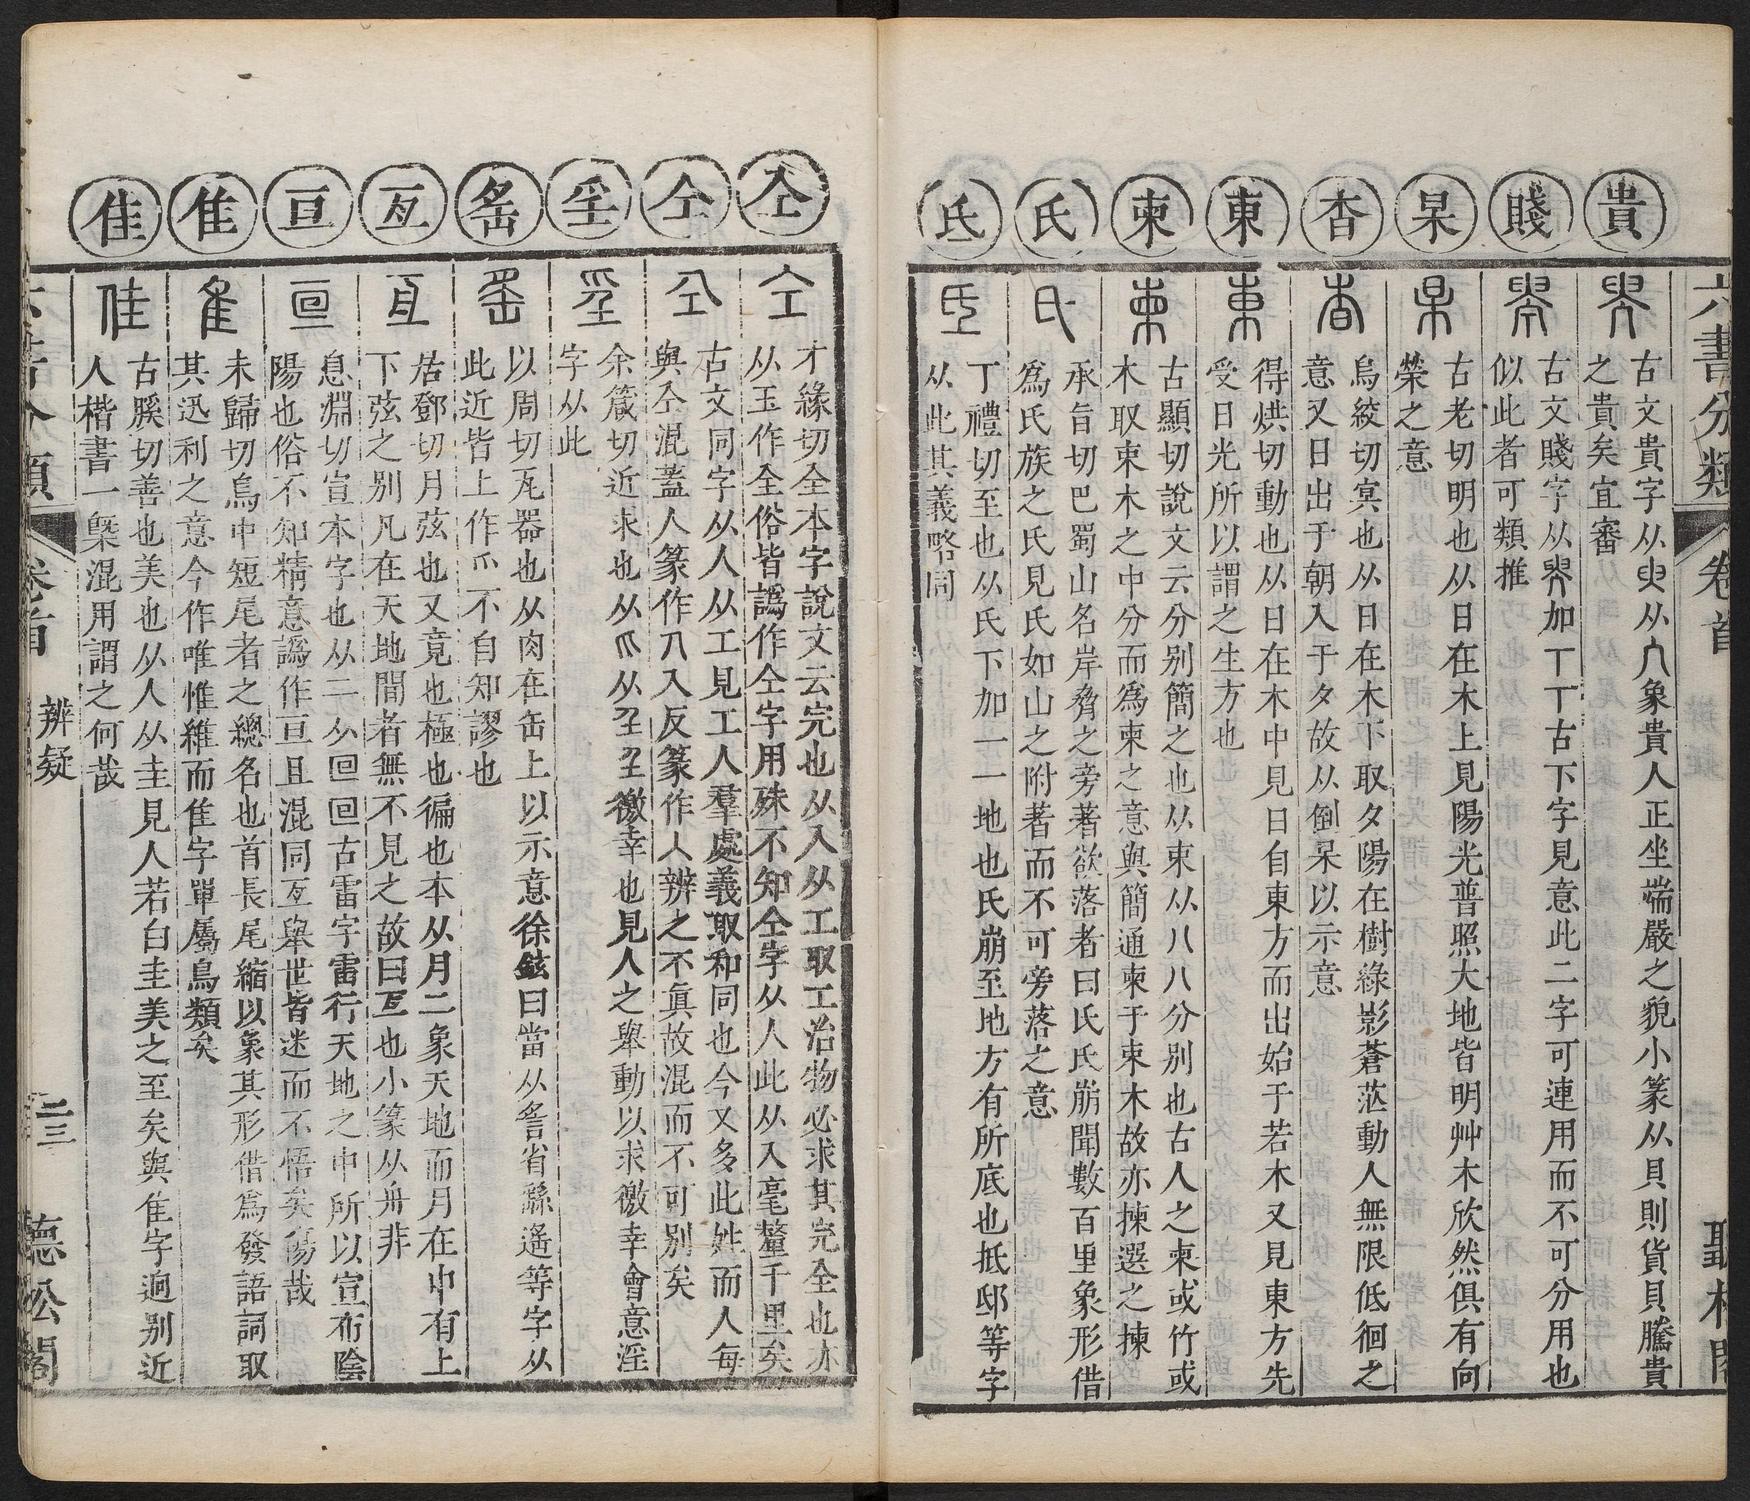 六書分類
卷首
聽松閣
貴
古文貴字从臾从八象貴人正坐端嚴之貌小篆从貝則貨貝騰貴
之貴矣宜審
賤
古文賤字从加丅丅古下字見意此二字可連用而不可分用也
似此者可類推
杲
古老切明也从日在木上見陽光普照大地皆明艸木欣然俱有向
榮之意
杳
烏絞切冥也从日在木下取夕陽在樹綠影蒼茫動人無限低徊之
意又日出于朝入于夕故从倒杲以示意
東
得烘切動也从日在木中見日自東方而出始于若木又見東方先
受日光所以謂之生方也
柬
古顯切說文云分别簡之也从束从八八分别也古人之柬或竹或
木取束木之中分而為柬之意與簡通柬于束木故亦揀選之揀
氏
承旨切巴蜀山名岸脅之旁著欲落者曰氏氏崩聞數百里象形借
為氏族之氏見氏如山之附著而不可旁落之意
氐
丁禮切至也从氏下加一一地也氏崩至地方有所底也抵邸等字
从此其義略同
仝
才緣切全本字說文云完也从入从工取工治物必求其完全也亦
从玉作全俗皆譌作仝字用殊不知仝字从人此从入毫釐千里矣
仝
古文同字从人从工見工人羣處義取和同也今又多此姓而人每
與仝混蓋人篆作入反篆作人辨之不眞故混而不可别矣
㸒
余箴切近求也从爫从𡈼𡈼徼幸也見人之舉動以求徼幸會意淫
字从此
䍃
以周切瓦器也从肉在缶上以示意徐鉉曰當从䚻省繇遙等字从
此近皆上作爫不自知謬也
亙
居鄧切月弦也又竟也極也徧也本从月二象天地而月在中有上
下弦之别凡在天地間者無不見之故曰亙也小篆从舟非
亘
息淵切宣本字也从二从囘囘古雷字雷行天地之中所以宣布陰
陽也俗不知精意譌作亘且混同亙舉世皆迷而不悟矣傷哉
隹
未歸切鳥中短尾者之總名也首長尾縮以象其形借為發語詞取
其迅利之意今作唯惟維而隹字單屬鳥類矣
佳
古膎切善也美也从人从圭見人若白圭美之至矣與隹字逈别近
人楷書一槩混用謂之何哉
辨疑
二三
聽松閣